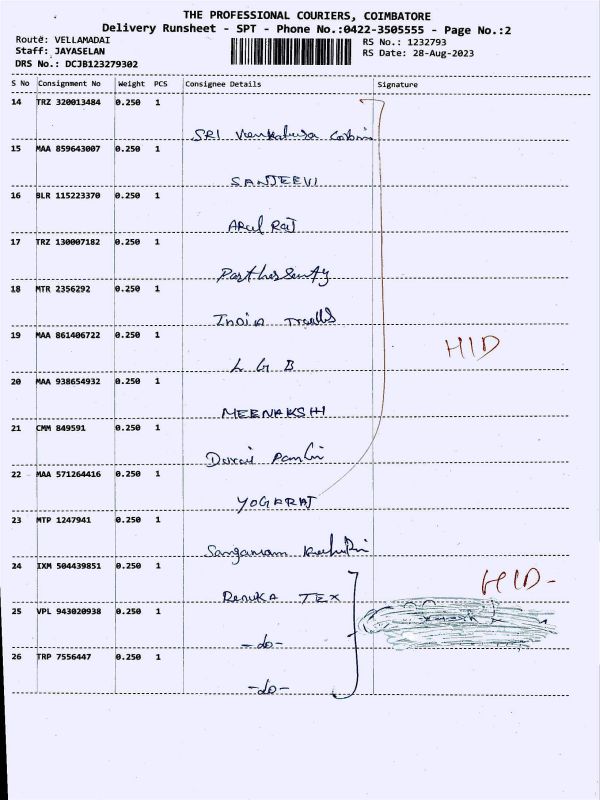 THE PROFESSIONAL COURIERS, COIMBATORE
Delivery Runsheet - SPT - Phone No.:0422-3505555 - Page No.:2
Route: VELLAMADAI
Staff: JAYASELAN
DRS No.: DCJB123279302
RS No.: 1232793
RS Date: 28-Aug-2023
S No Consignment No Weight PCS Consignee Details Signature
14 TRZ 320013484 0.250 1
SRI
15 MAA 859643007 0.250 1
SANJEEVI
16 BLR 115223370 0.250 1
ARul RAJ
17 TRZ 130007182 0.250 1
18 MTR 2356292 0.250 1
India
19 MAA 861406722 0.250 1
L G B
HID
20 MAA 938654932 0.250 1
MEENAKSHI
21 CMM 849591 0.250 1
22 MAA 571264416 0.250 1
YOGARAJ
23 MTP 1247941 0.250 1
24 IXM 504439851 0.250 1
RENUKA TEX
HID-
25 VPL 943020938 0.250 1
-do-
26 TRP 7556447 0.250 1
-do-